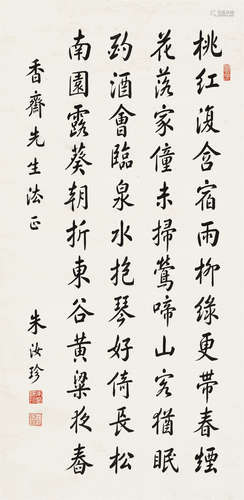 桃紅復含宿雨柳綠更帶春煙
花落家僮未掃鶯啼山客猶眠
酌酒會臨泉水抱琴好倚長松
南園露葵朝折東谷黃粱夜舂
香齊先生法正
朱汝珍